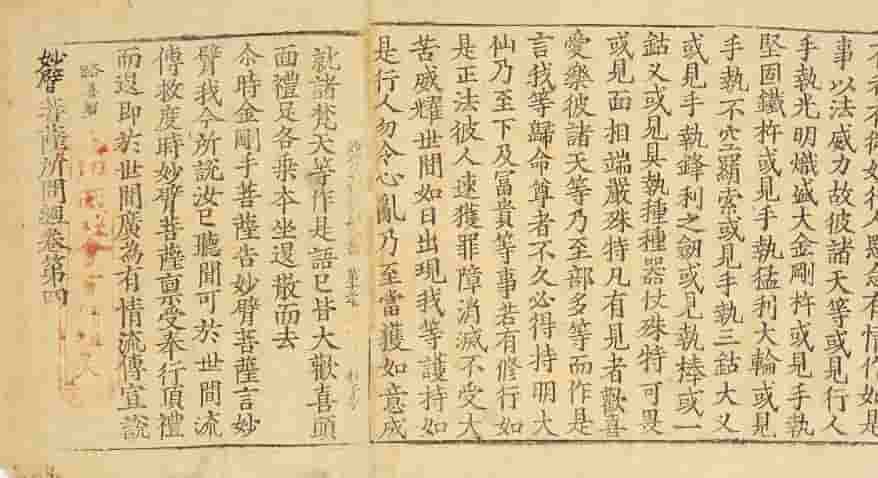 有情作如是
事以法威力故彼諸天等或見行人
手執光明熾盛大金剛杵或見手執
堅固鐵杵或見手執猛利大輪或見
手執不空羂索或見手執三鈷大乂
或見手執鋒利之劒或見執棒或一
鈷乂或見具執種種器仗殊特可畏
或見面相端嚴殊特凡有見者歡喜
愛樂彼諸天等乃至部多等而作是
言我等歸命尊者不久必得持明大
仙乃至下及冨貴等事若有修行如
是正法彼人速獲罪障消滅不受大
苦威耀世間如日出現我等護持如
是行人勿令心亂乃至當獲如意成
就諸梵天等作是語已皆大歡喜頭
面禮足各乗夲坐退散而去
尒時金剛手菩薩告妙臂菩薩言妙
臂我今所說汝已聽聞可於世間流
傳救度時妙臂菩薩禀受奉行頂禮
而退即於世間廣為有情流傳宣說
妙臂菩薩所問經卷第四